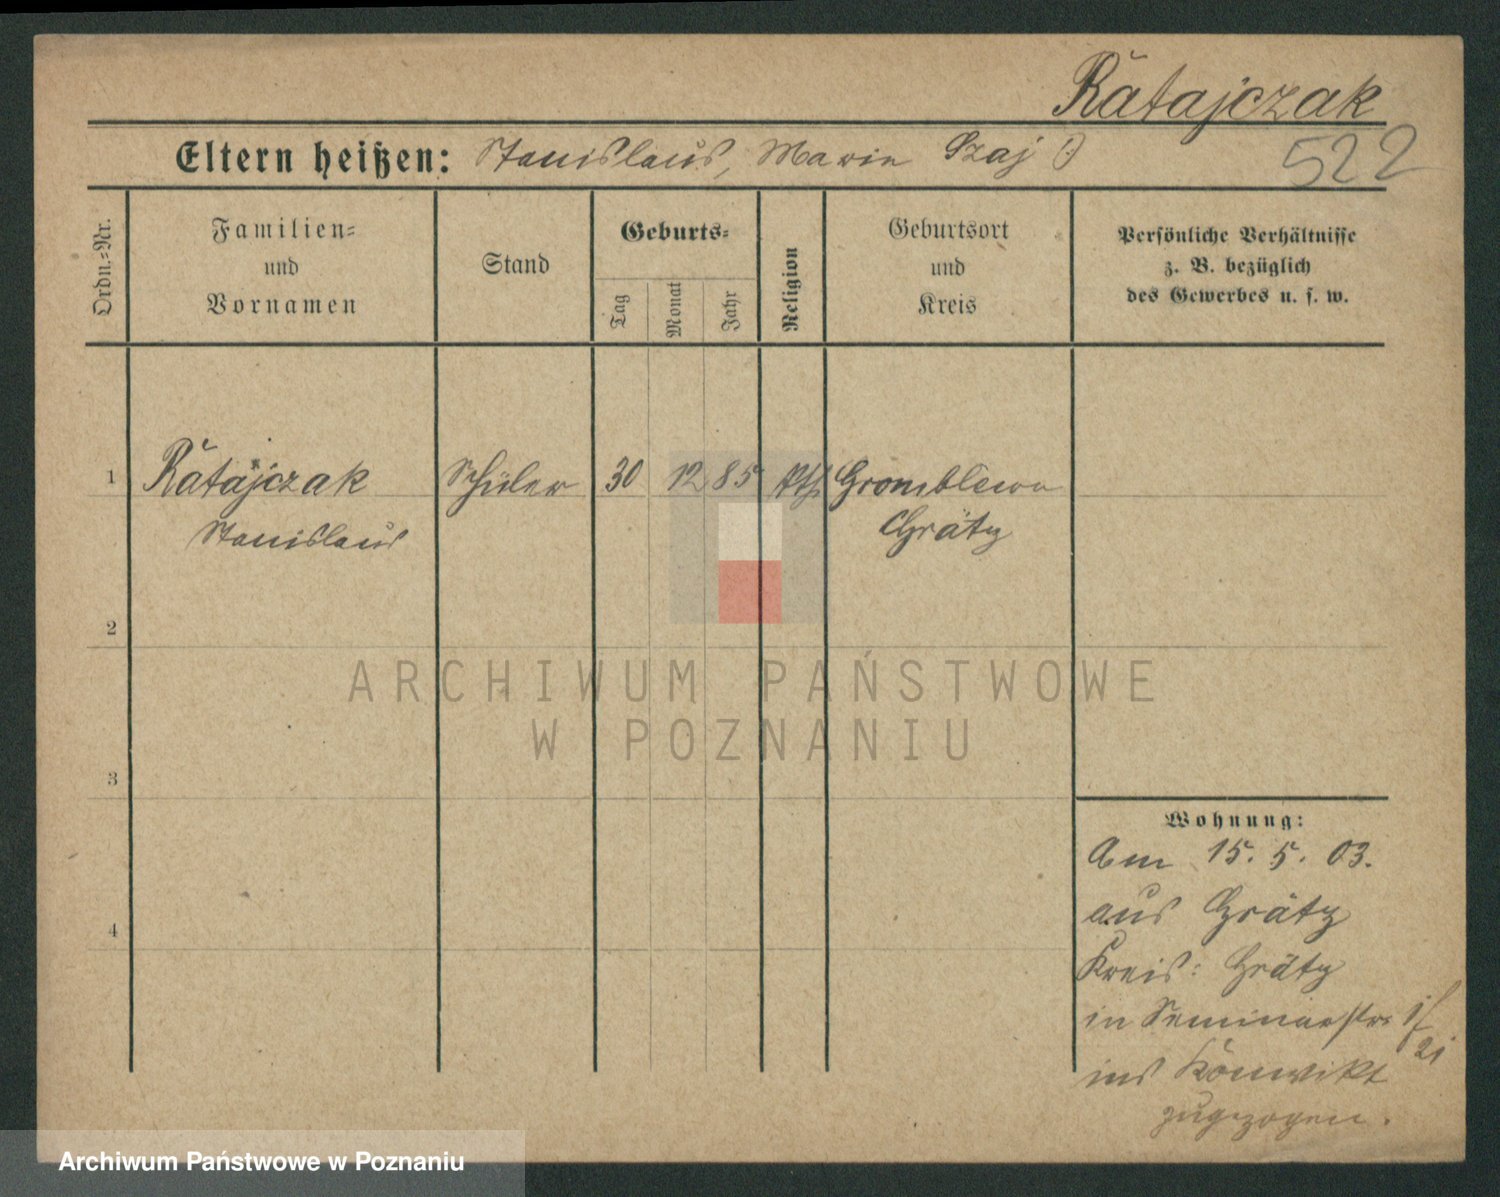 Ratajczak
522
Eltern heißen: Stanislaus, Marie Szaj
Ordn.-Nr.
Familien-
und
Vornamen
Stand
Geburts-
Tag
Monat
Jahr
Religion
Geburtsort
und
Kreis
Persönliche Verhältnisse
z. B. bezüglich
des Gewerbes u. s. w.
1 Ratajczak Schüler 30 12 85 kth Gromblewo
Stanislaus Grätz
2
3
4
ARCHIWUM PAŃSTWOWE
W POZNANIU
Wohnung:
Am 15. 5. 03.
aus Grätz
Kreis: Grätz
in Seminarstr.
ins Konvikt
zugezogen.
Archiwum Państwowe w Poznaniu